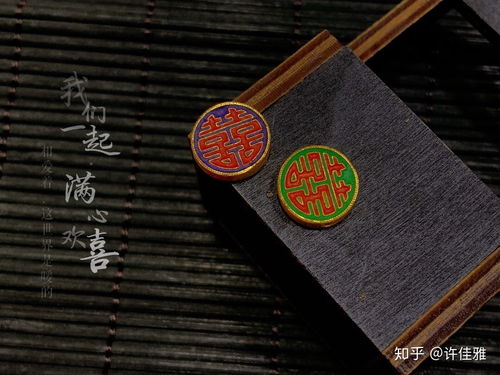 我们一起
满心欢喜
相爱着
这世界是
囍
囍
知乎 @许佳雅